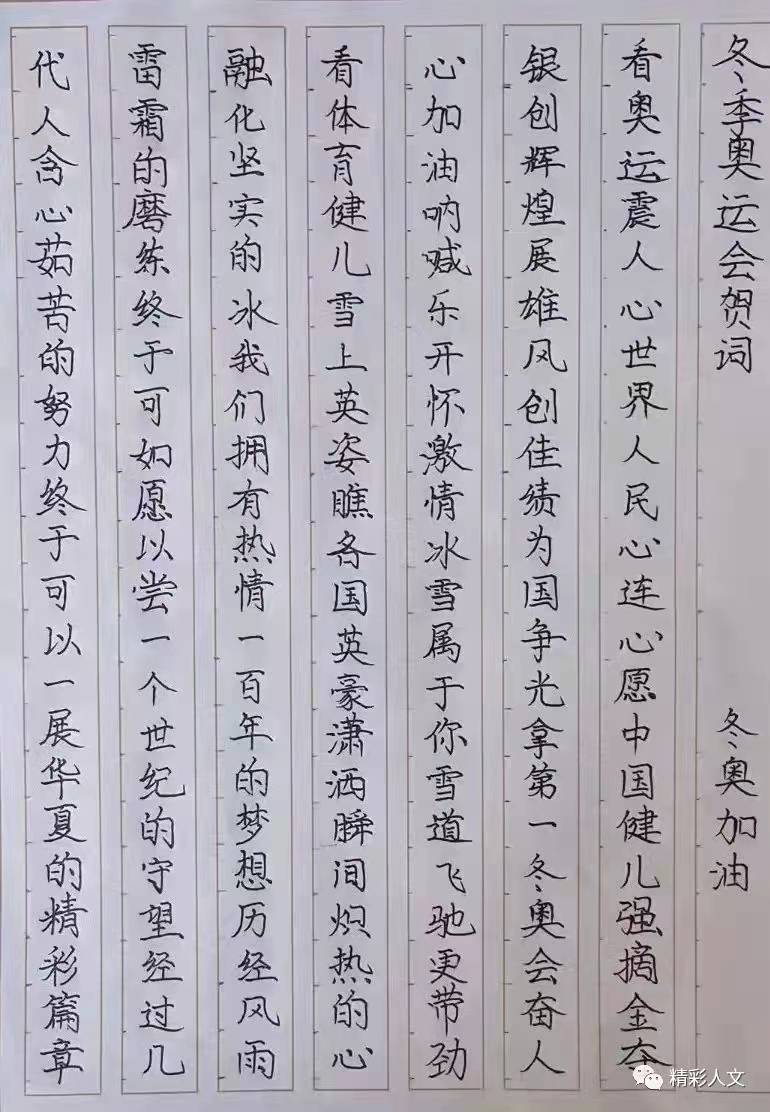 冬季奥运会贺词 冬奥加油
看奥运震人心世界人民心连心愿中国健儿强摘金夺
银创辉煌展雄风创佳绩为国争光拿第一冬奥会奋人
心加油呐喊乐开怀激情冰雪属于你雪道飞驰更带劲
看体育健儿雪上英姿瞧各国英豪潇洒瞬间炽热的心
融化坚实的冰我们拥有热情一百年的梦想历经风雨
雷霜的磨练终于可如愿以尝一个世纪的守望经过几
代人含心茹苦的努力终于可以一展华夏的精彩篇章
精彩人文